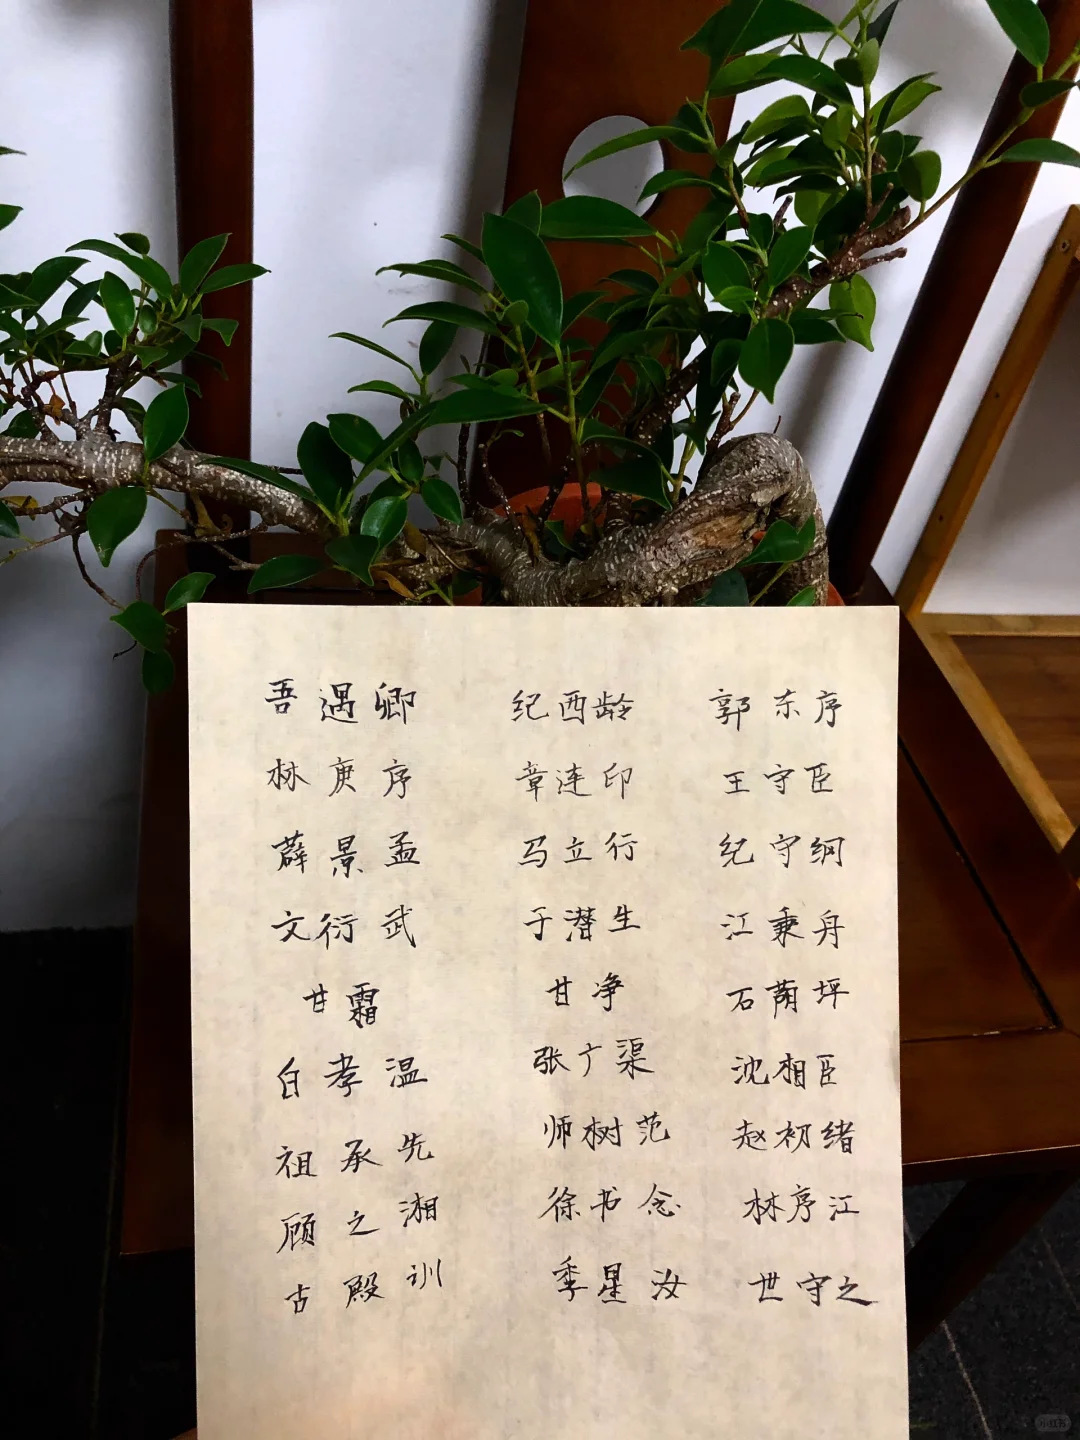 吾遇卿 纪西龄 郭东序
林庚序 章连印 王守臣
薛景孟 马立行 纪守纲
文衍武 于潜生 江秉舟
甘霜 甘净 石蘭坪
白孝温 张广渠 沈相臣
祖承先 师树范 赵初绪
顾之湘 徐书念 林序江
古殿训 季星汝 世守之
小红书